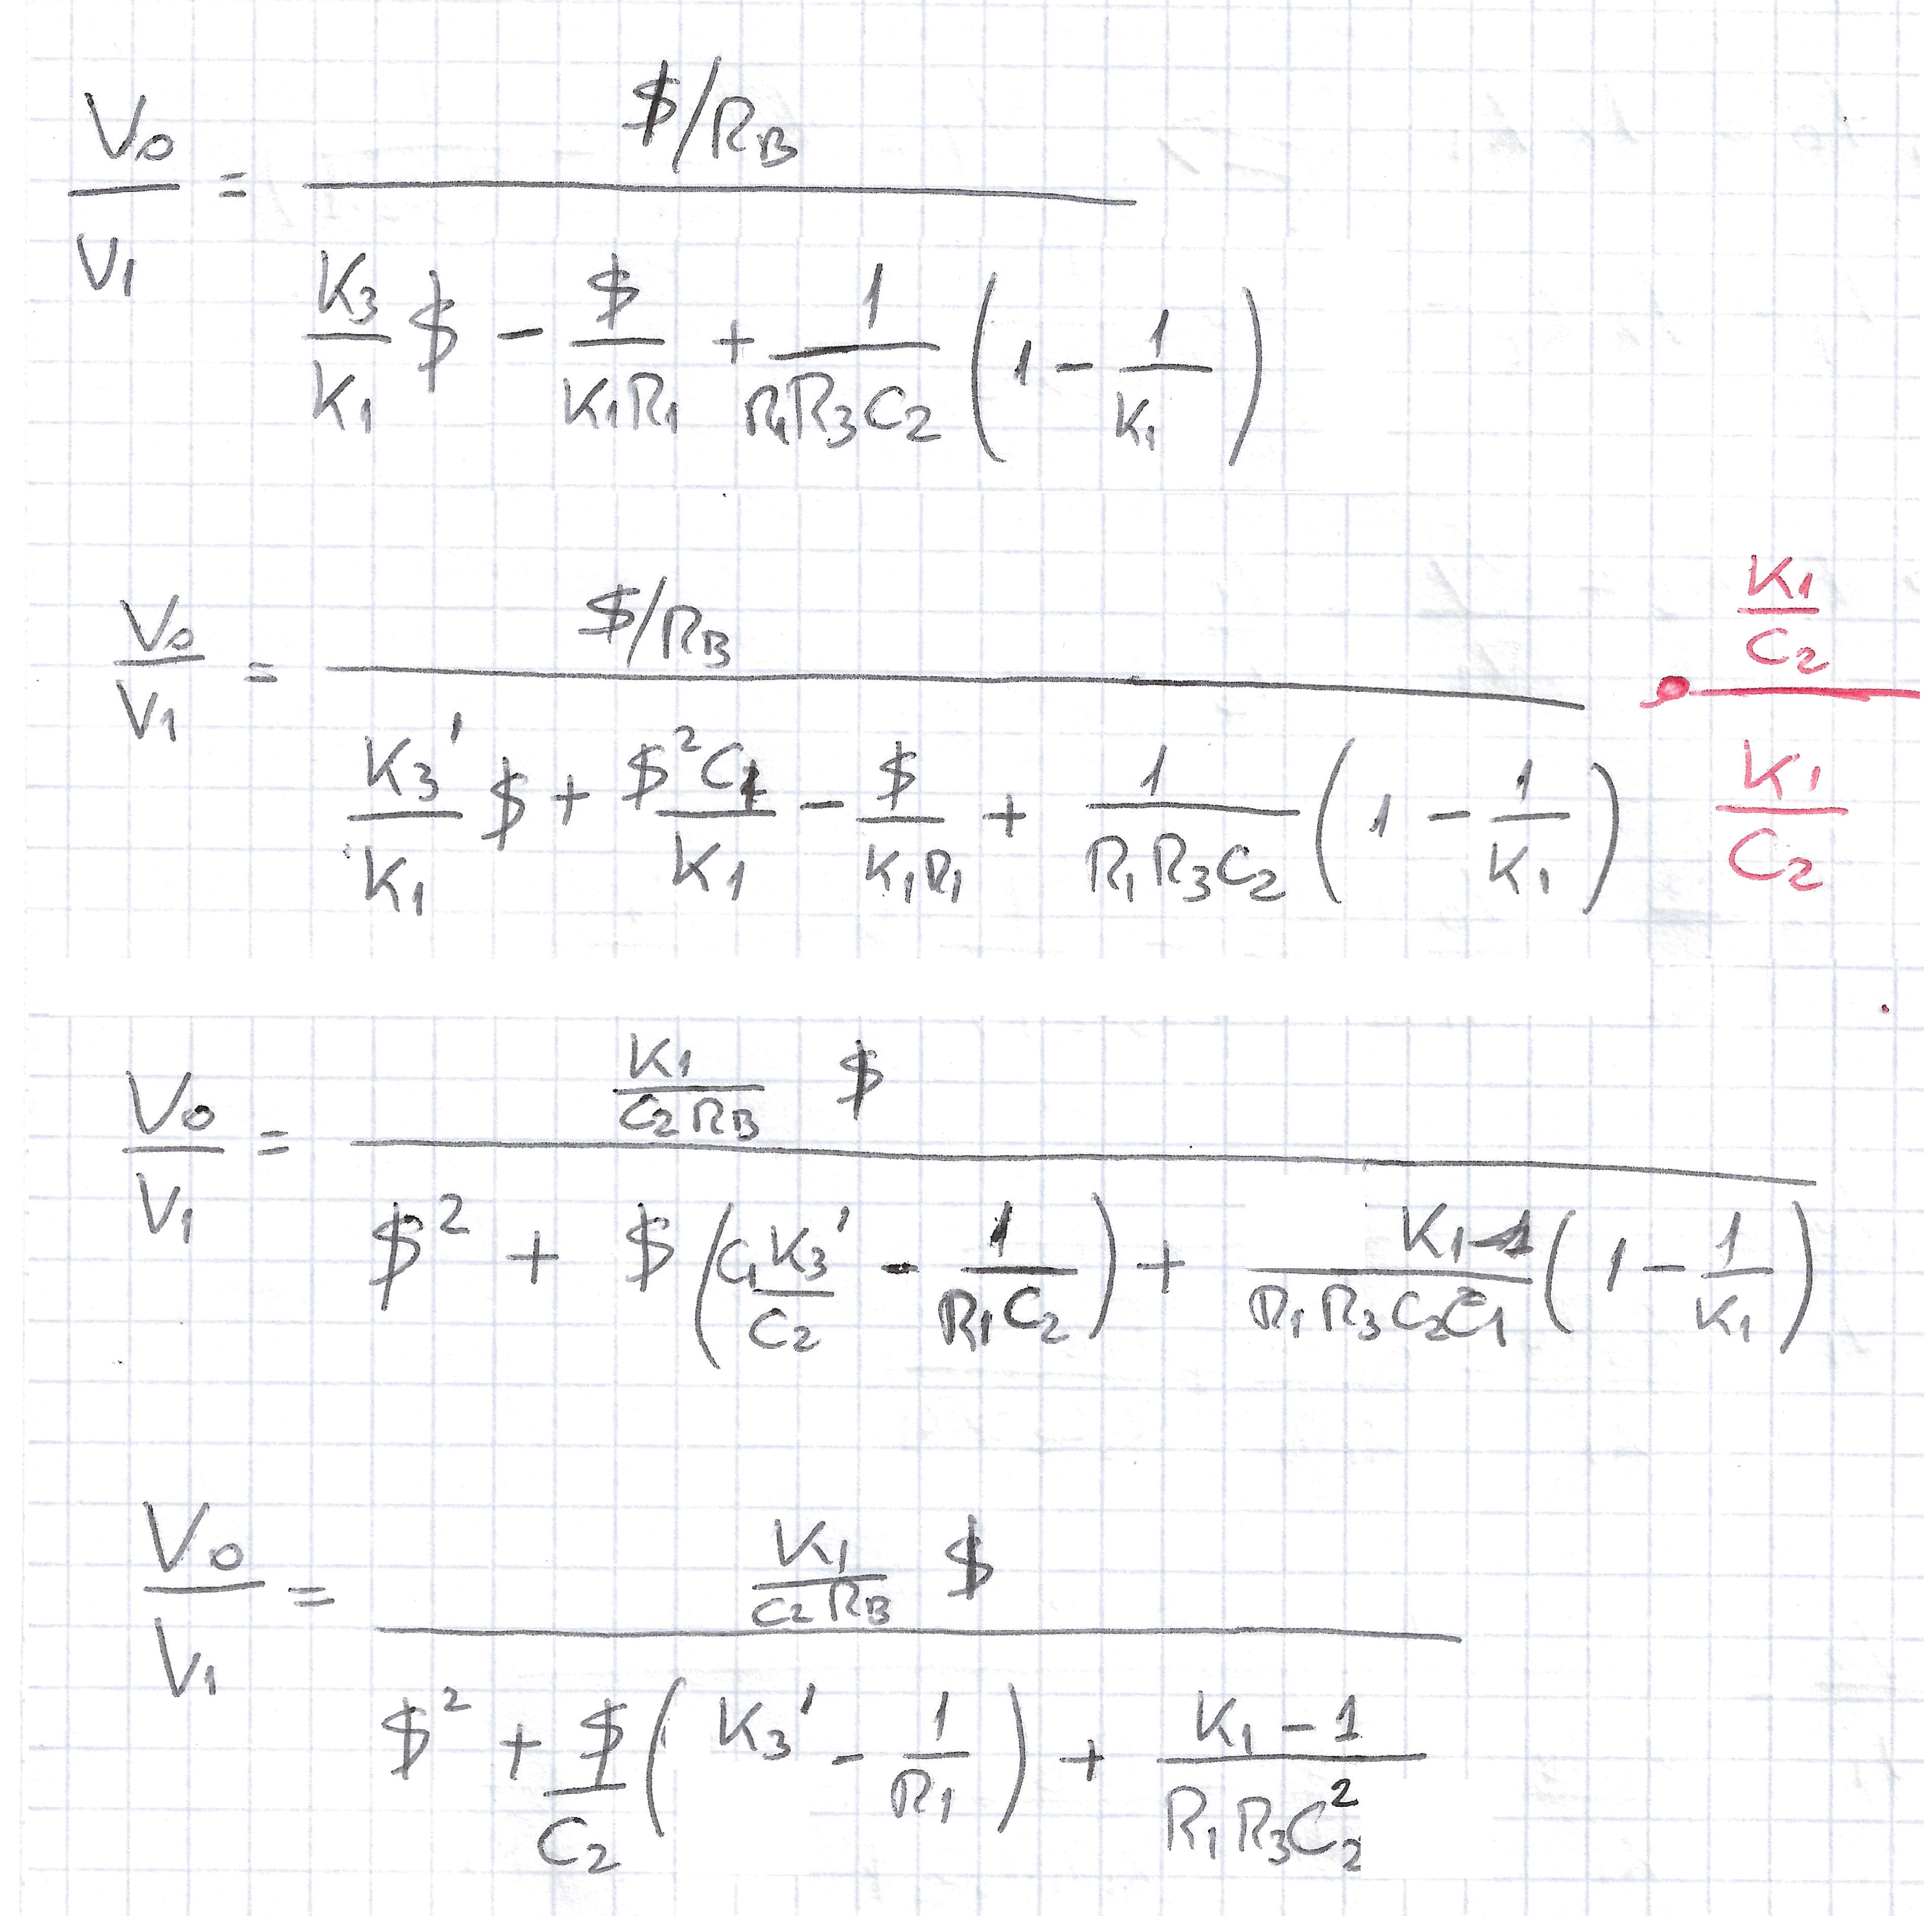 V₀/V₁ = ($/R_B) / ( (K₃/K₁) $ − $/(K₁R₁) + 1/(R₁R₃C₂) (1 − 1/K₁) )
V₀/V₁ = ($/R_B) / ( (K₃'/K₁) $ + $²C₁/K₁ − $/(K₁R₁) + 1/(R₁R₃C₂) (1 − 1/K₁) ) • (K₁/C₂)/(K₁/C₂)
V₀/V₁ = ( K₁/(C₂R_B) $ ) / ( $² + $ (C₁ K₃'/C₂ − 1/(R₁C₂)) + (K₁-1)/(R₁R₃C₂C₁) (1 − 1/K₁) )
V₀/V₁ = ( K₁/(C₂R_B) $ ) / ( $² + $/C₂ (K₃' − 1/R₁) + (K₁ − 1)/(R₁R₃C₂²) )